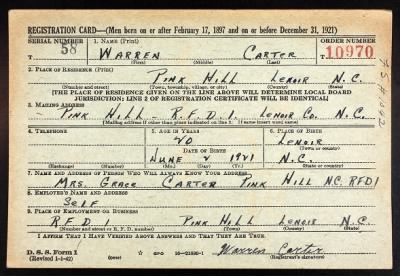 REGISTRATION CARD—(Men born on or after February 17, 1897 and on or before December 31, 1921)
SERIAL NUMBER 1. NAME (Print) ORDER NUMBER
T 58 WARREN CARTER T 10970
(First) (Middle) (Last)
2. PLACE OF RESIDENCE (Print)
PINK HILL LENOIR N.C.
(Number and street) (Town, township, village, or city) (County) (State)
[THE PLACE OF RESIDENCE GIVEN ON THE LINE ABOVE WILL DETERMINE LOCAL BOARD
JURISDICTION; LINE 2 OF REGISTRATION CERTIFICATE WILL BE IDENTICAL]
3. MAILING ADDRESS
PINK HILL R.F.D. 1. LENOIR CO. N.C.
[Mailing address if other than place indicated on line 2. If same insert word same]
4. TELEPHONE 5. AGE IN YEARS 6. PLACE OF BIRTH
20 LENOIR
DATE OF BIRTH (Town or county)
JUNE 2 1921 N.C.
(Exchange) (Number) (Mo.) (Day) (Yr.) (State or country)
7. NAME AND ADDRESS OF PERSON WHO WILL ALWAYS KNOW YOUR ADDRESS
MRS. GRACE CARTER PINK HILL N.C. RFD1
8. EMPLOYER'S NAME AND ADDRESS
SELF
9. PLACE OF EMPLOYMENT OR BUSINESS
R.F.D. 1 PINK HILL LENOIR N.C.
(Number and street or R. F. D. number) (Town) (County) (State)
I AFFIRM THAT I HAVE VERIFIED ABOVE ANSWERS AND THAT THEY ARE TRUE.
D. S. S. Form 1
(Revised 1-1-42) (over) GPO 16—21630-1 Warren Carter
(Registrant's signature)